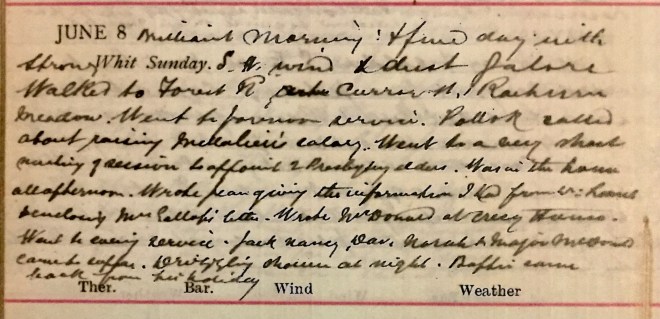 JUNE 8 Brilliant morning! & fine day with
strong Whit Sunday. S.W. wind & dust galore
Walked to Forest R Currow Raeburn
meadow. Went to forenoon service. Pollok called
about raising salary. Went to a very short
meeting of session to appoint 2 Presbytery elders. Was in the house
all afternoon. Wrote Jean giving the information I had from
enclosing Mrs letter. Wrote McDonald at
Went to evening service. Jack Nancy, Dav. Norah & Major McDonald
came to supper. Drizzling shower at night. Boffie came
back from his holiday
Ther. Bar. Wind Weather